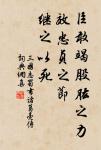 臣敢竭股肱之力
效忠貞之節
繼之以死
三國志蜀書諸葛亮傳
詞典網集